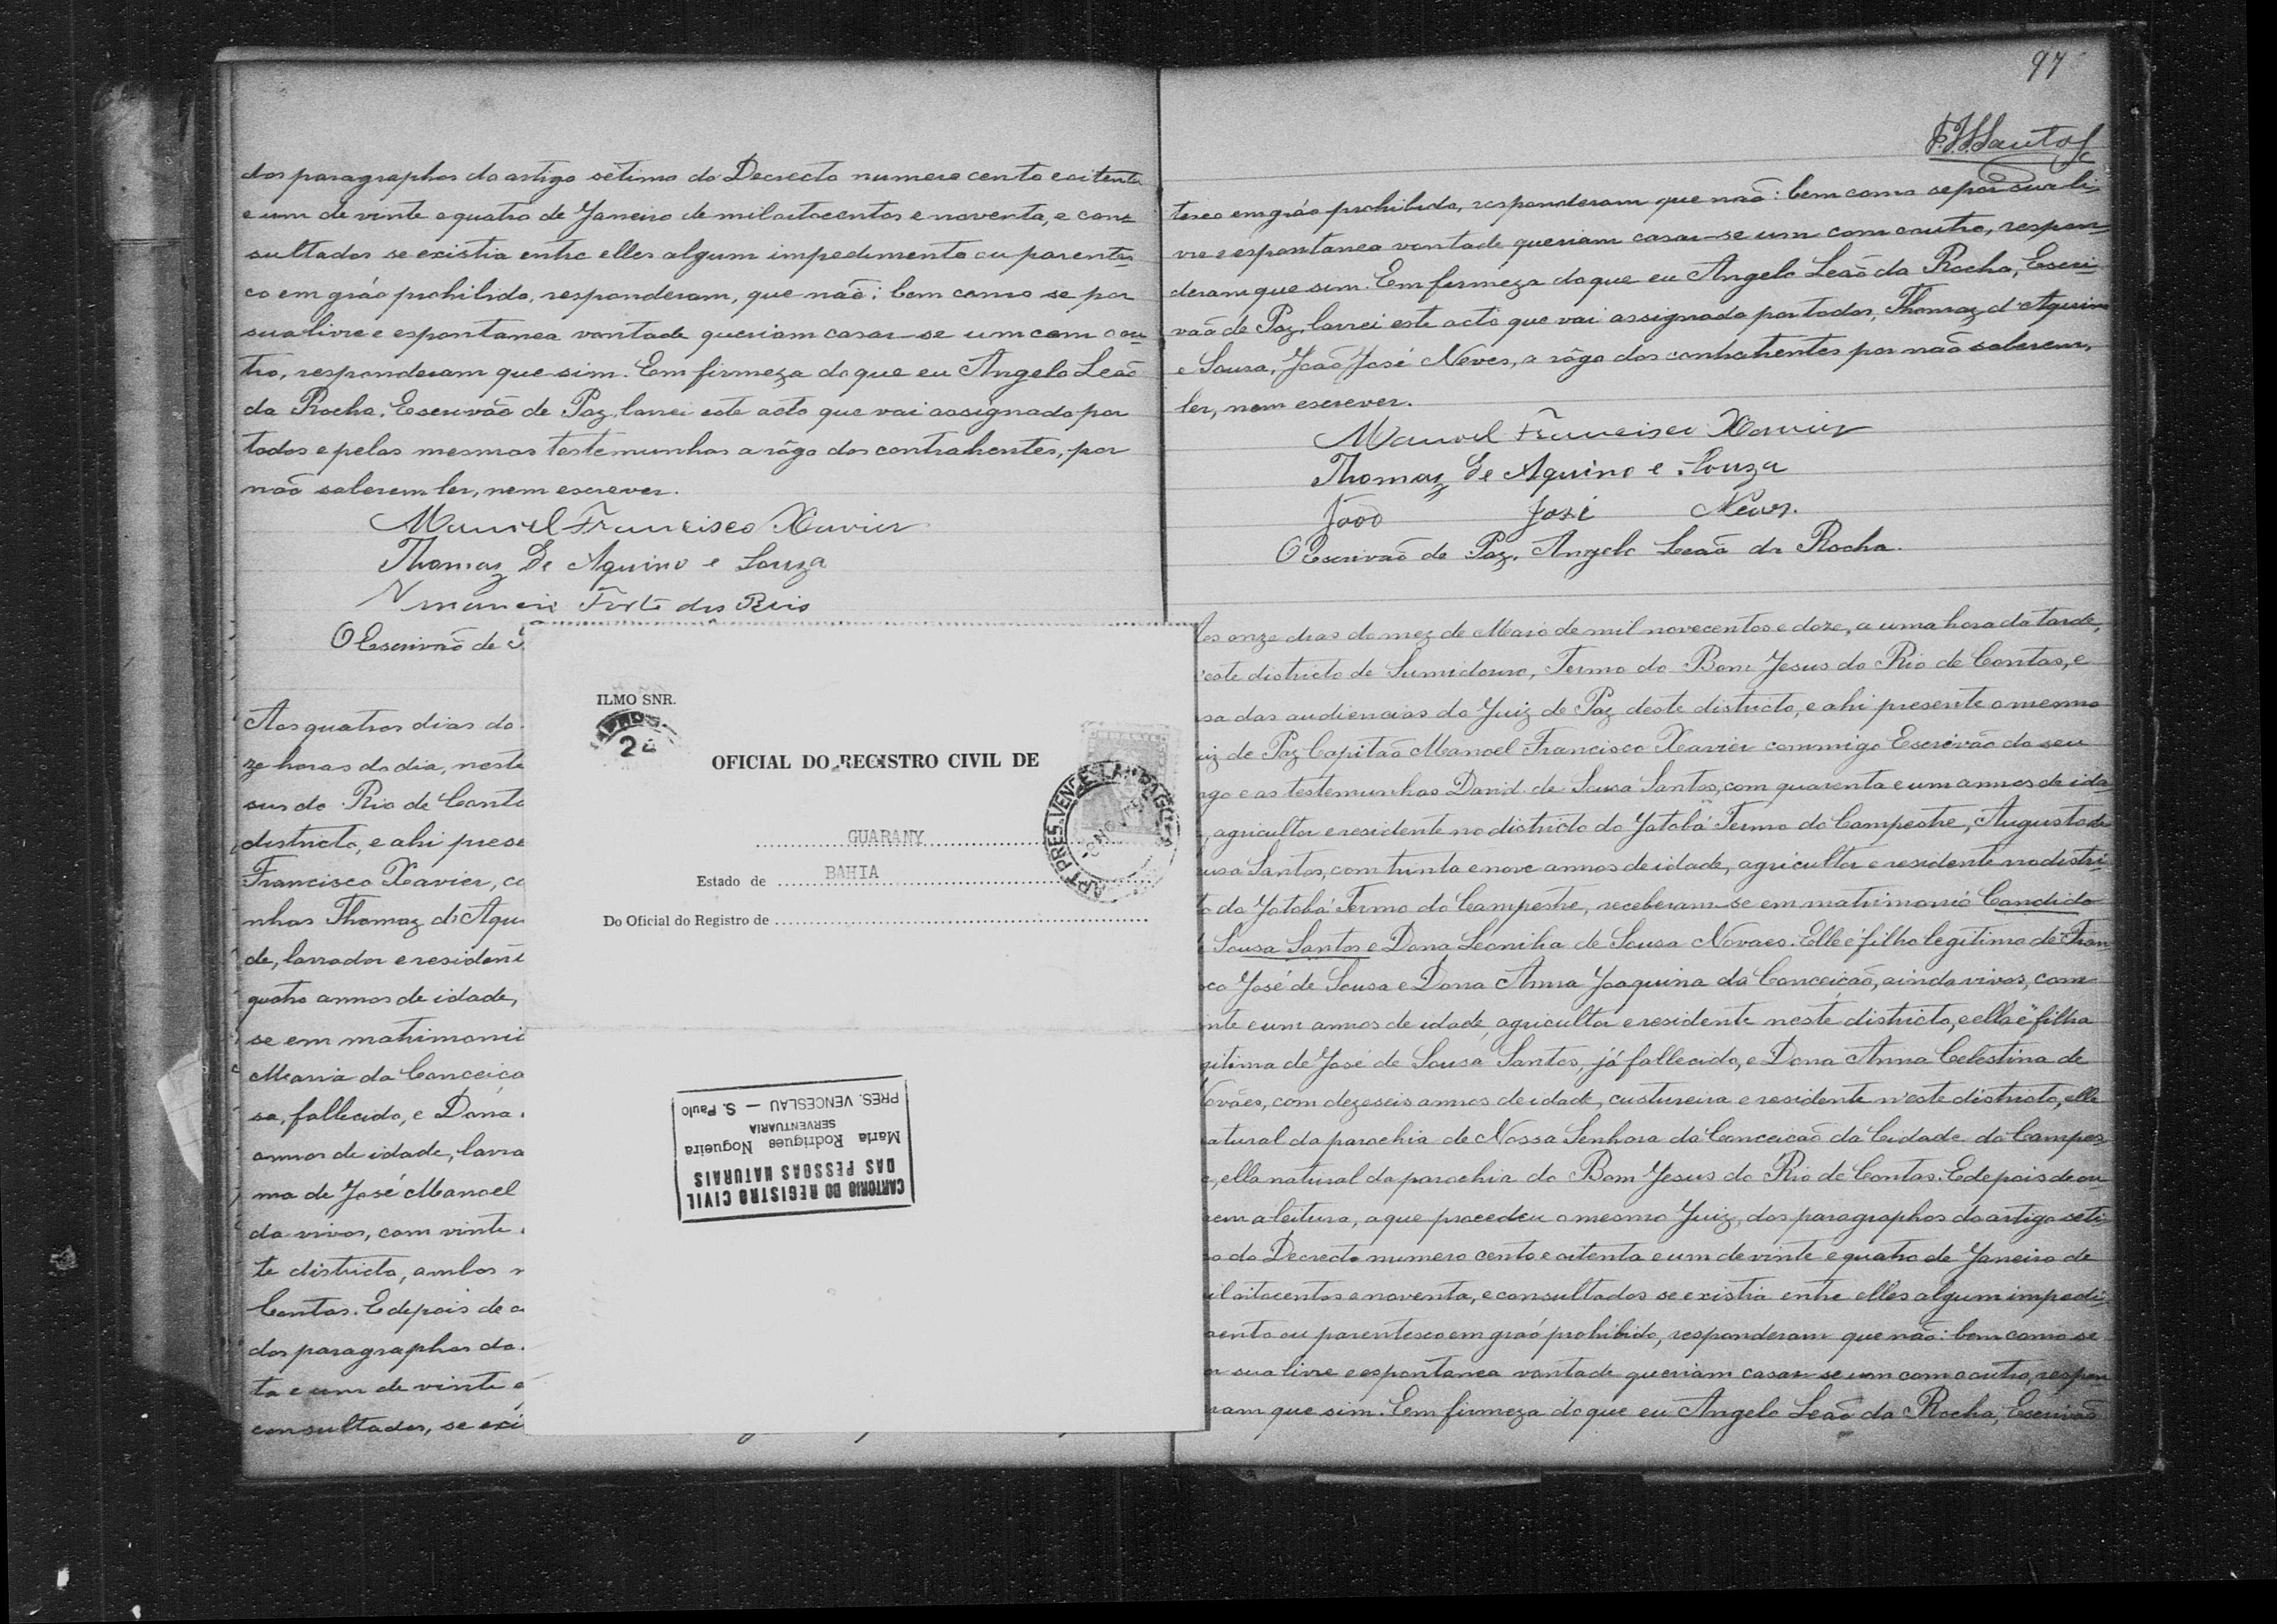 dos paragraphos do artigo sétimo do Decrecto numero cento e oitenta
e um de vinte e quatro de Janeiro de mil oitocentos e noventa, e con-
sultados se existia entre elles algum impedimento ou parentes-
co em gráo prohibido, responderam, que não: bem como se por
sua livre e espontanea vontade queriam casar-se um com o ou-
tro, responderam que sim. Em firmeza do que eu Angelo Leão
da Rocha, Escrivão de Paz, lavrei este acto que vai assignado por
todos e pelas mesmas testemunhas a rôgo dos contrahentes, por
não saberem ler, nem escrever.
Manoel Francisco Xavier
Thomaz De Aquino e Souza
Forte dos Reis
O Escrivão de
Aos quatros dias do
ze horas do dia, neste
sus do Rio de Conta
districto, e ahi prese
Francisco Xavier, co
nhas Thomaz d'Aqu
de, lavrador e resident
quatro annos de idade,
se em matrimonio
Maria da Conceiça
sa, fallecido, e Dona
annos de idade, lavra
ma de José Manoel
da vivos, com vinte
te districto, ambos
Contas. E depois de
dos paragraphos do
ta e um de vinte e
consultados, se exi
ILMO SNR.
24
OFICIAL DO REGISTRO CIVIL DE
GUARANY
Estado de BAHIA
Do Oficial do Registro de
CARTORIO DO REGISTRO CIVIL
DAS PESSOAS NATURAIS
Maria Rodrigues Nogueira
SERVENTUARIA
PRES. VENCESLAU — S. Paulo
97
F.J.S.Santos
tesco em gráo prohibido, responderam que não: bem como se por sua li-
vre e espontanea vontade queriam casar-se um com o outro, respon-
deram que sim. Em firmeza do que eu Angelo Leão da Rocha, Escri-
vão de Paz, lavrei este acto que vai assignado por todos, Thomaz d'Aquino
e Sousa, João José Neves, a rôgo dos contrahentes por não saberem,
ler, nem escrever.
Manoel Francisco Xavier
Thomaz De Aquino e Souza
João José Neves.
O Escrivão de Paz, Angelo Leão da Rocha.
os onze dias do mez de Maio de mil novecentos e doze, a uma hora da tarde,
este districto de Sumidouro, Termo do Bom Jesus do Rio de Contas, e
sa das audiencias do Juiz de Paz deste districto, e ahi presente o mesmo
iz de Paz Capitão Manoel Francisco Xavier commigo Escrivão do seu
rgo e as testemunhas David de Sousa Santos, com quarenta e um annos de ida-
, agricultor e residente no districto do Jatobá Termo do Campestre, Augusto de
usa Santos, com trinta e nove annos de idade, agricultor e residente no distri-
to do Jatobá Termo do Campestre, receberam-se em matrimonio Candido
Sousa Santos e Dona Leonilia de Sousa Novaes. Elle é filho legitimo de Fran-
co José de Sousa e Dona Anna Joaquina da Conceicão, ainda vivos, com
nte e um annos de idade, agricultor e residente neste districto, e ella é filha
gitima de José de Sousa Santos, já fallecido, e Dona Anna Celestina de
ováes, com dezeseis annos de idade, custureira e residente n'este districto, elle
atural da parochia de Nossa Senhora da Conceicão da Cidade do Campes-
e, ella natural da parochia do Bom Jesus do Rio de Contas. E depois de ou-
rem a leitura, a que procedeu o mesmo Juiz, dos paragraphos do artigo seti-
o do Decrecto numero cento e oitenta e um de vinte e quatro de Janeiro de
il oitocentos e noventa, e consultados se existia entre elles algum impedi-
ento ou parentesco em gráo prohibido, responderam que não: bem como se
r sua livre e espontanea vontade queriam casar-se um com o outro, respon-
ram que sim. Em firmeza do que eu Angelo Leão da Rocha, Escrivão